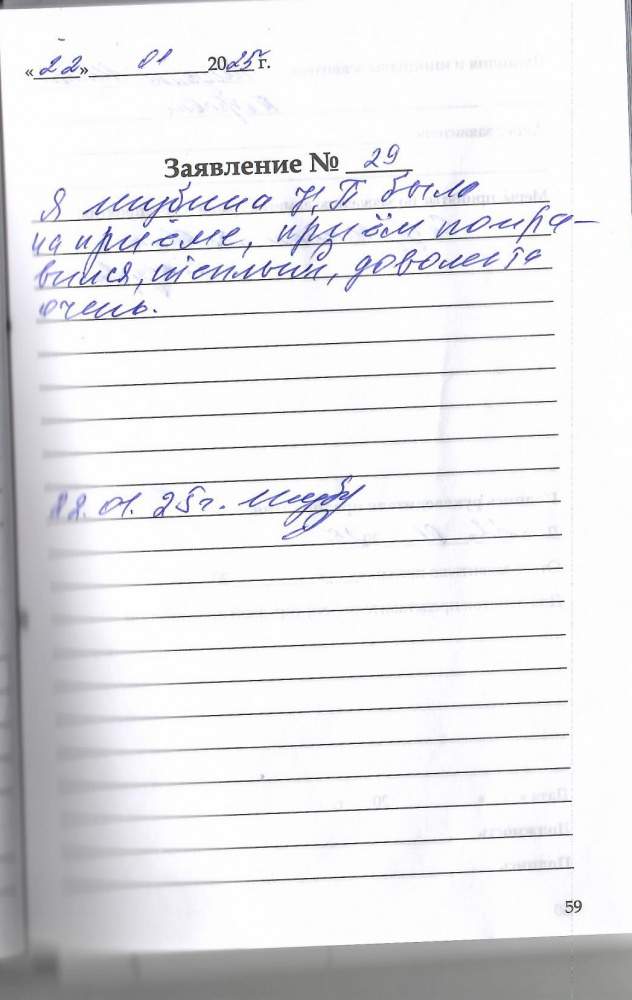 «22» 01 2025 г.
Заявление № 29
Я Шубина Н.П была
на приёме, приём понра-
вился, теплый, довольна
очень.
22.01.25г. Шубу
59